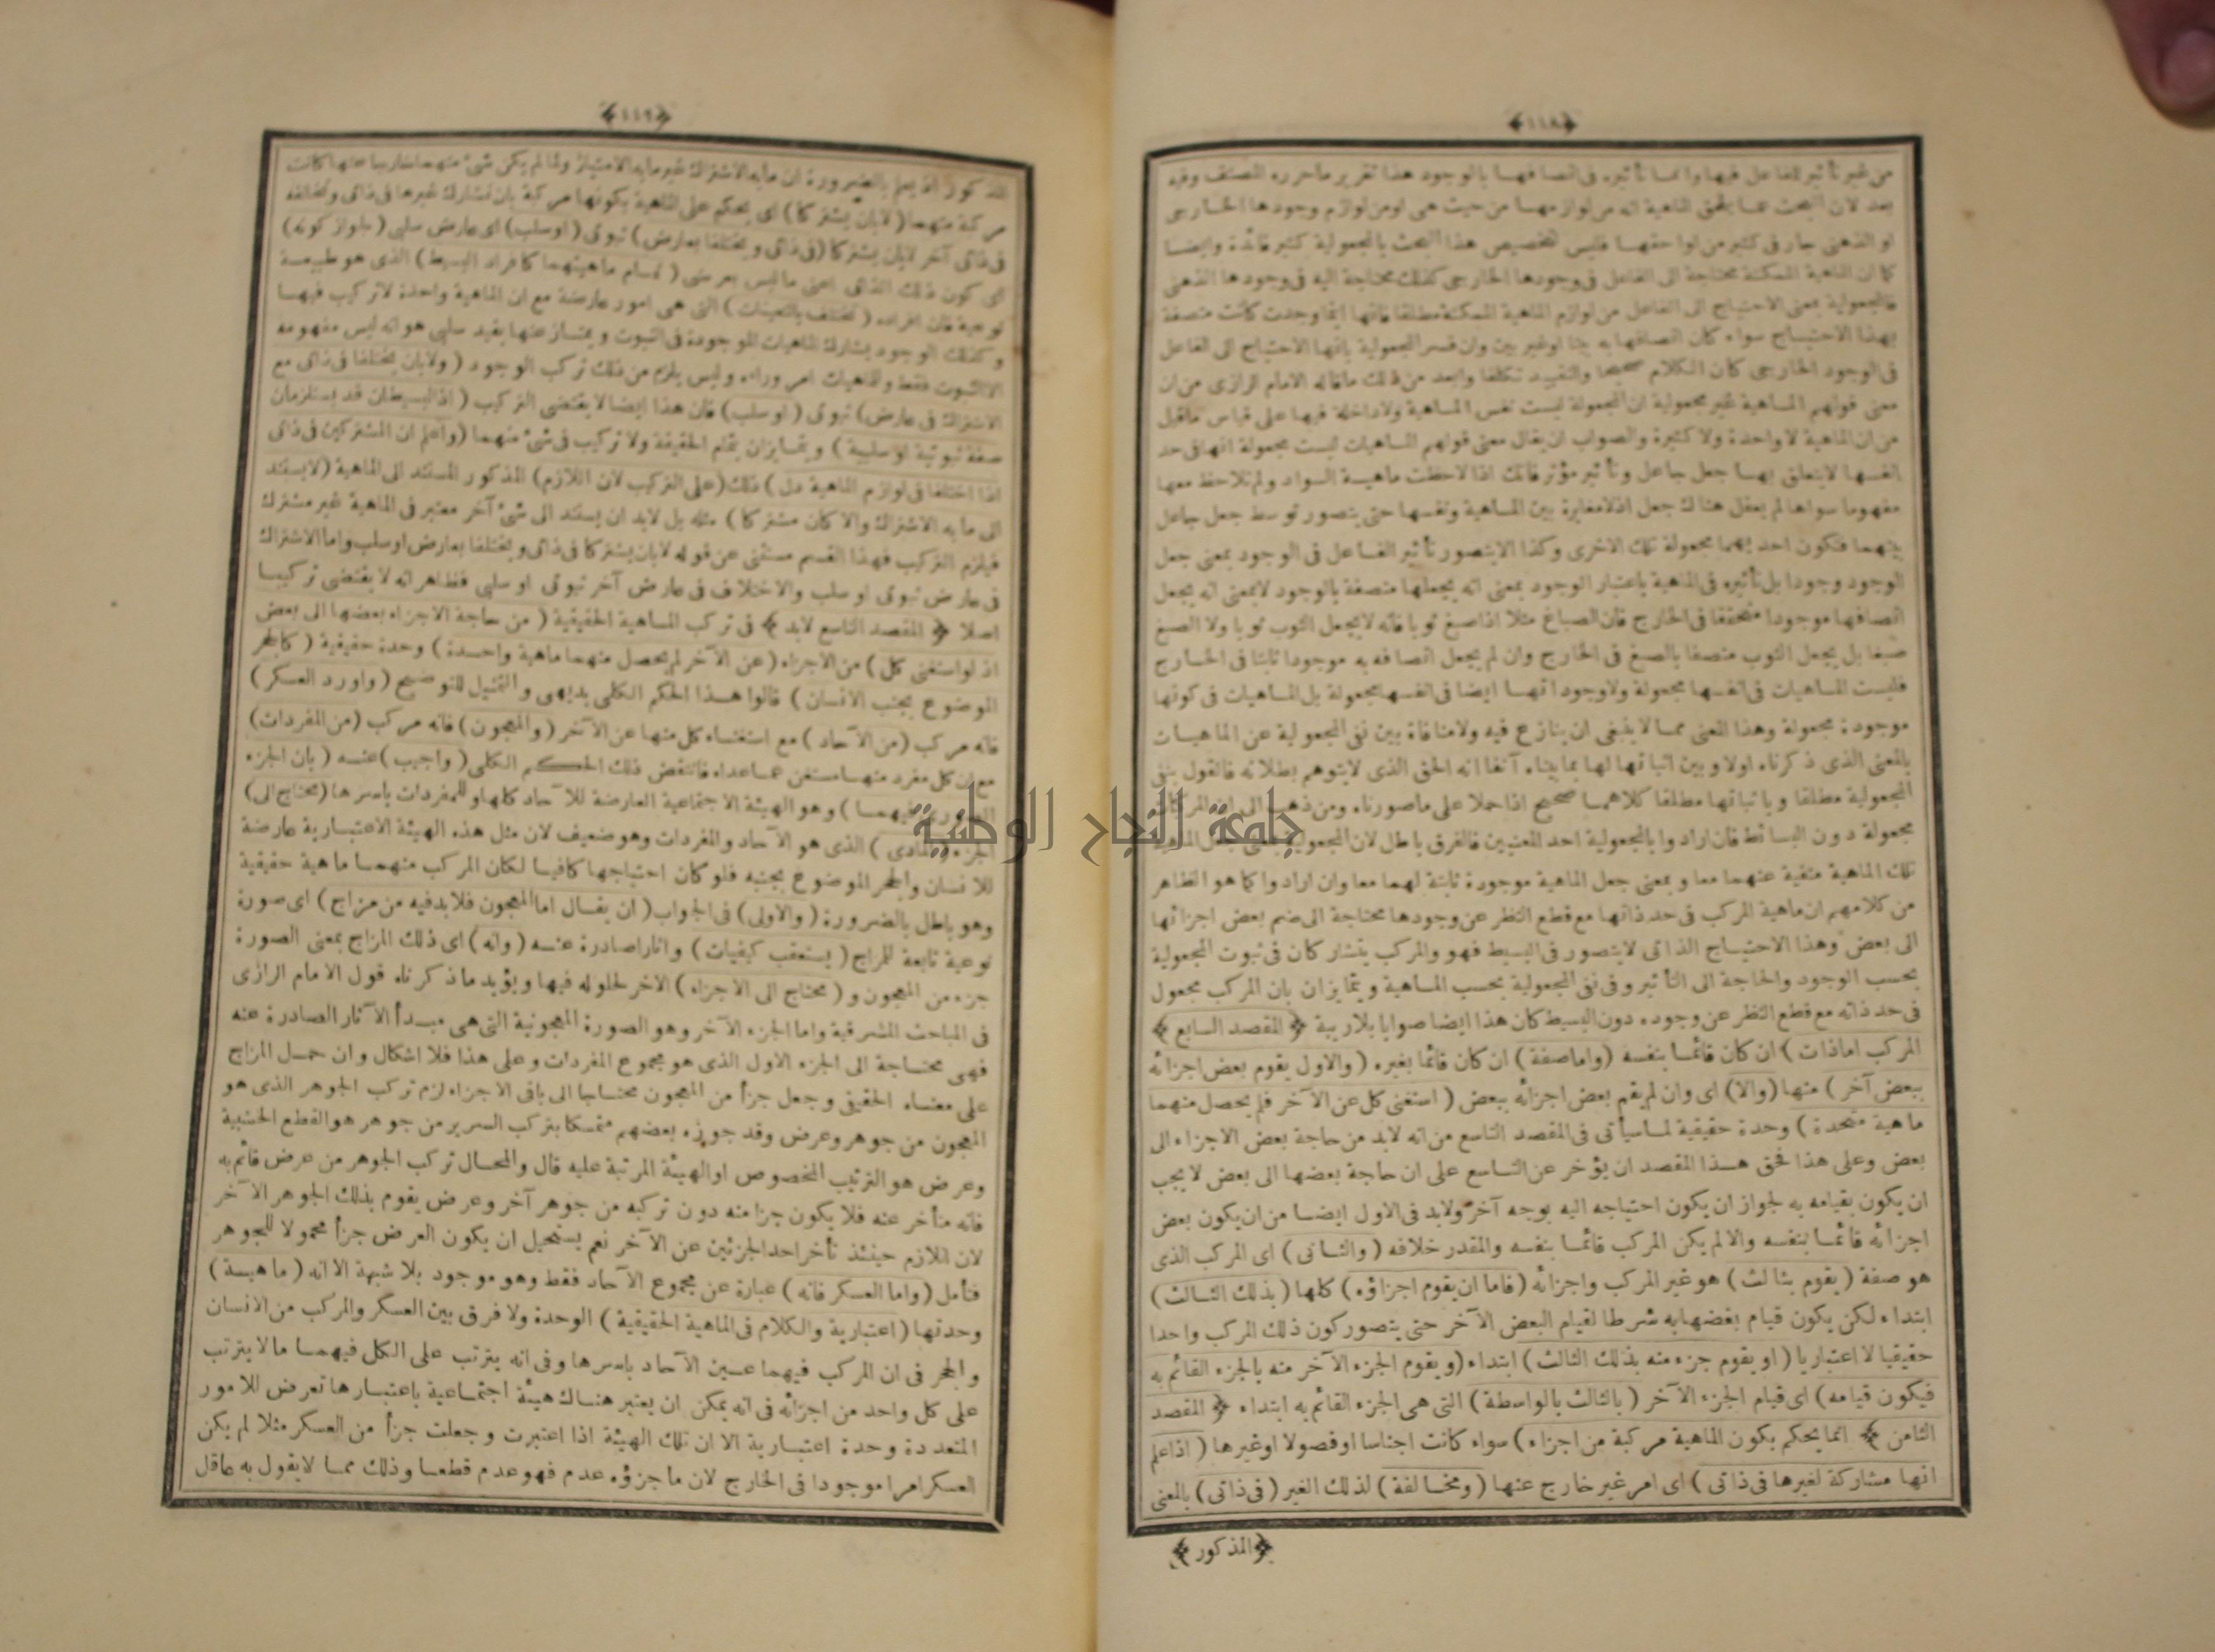 ﴿١١٨﴾
من غير تأثير للفاعل فيها وانما تأثيره فى اتصافها بالوجود هذا تقرير ماحرره المصنف وفيه
بعد لان البحث عما يلحق الماهية انه من لوازمها من حيث هى اومن لوازم وجودها الخارجى
او الذهنى جار فى كثير من لواحقها فليس لتخصيص هذا البحث بالمجعولية كثير فائدة وايضا
كما ان الماهية الممكنة محتاجة الى الفاعل فى وجودها الخارجى كذلك محتاجة اليه فى وجودها الذهنى
فالمجعولية بمعنى الاحتياج الى الفاعل من لوازم الماهية الممكنة مطلقا فانها اينما وجدت كانت متصفة
بهذا الاحتياج سواء كان اتصافها به بينا اوغير بين وان فسر المجعولية بانها الاحتياج الى الفاعل
فى الوجود الخارجى كان الكلام صحيحا والتقييد تكلفا وابعد من ذلك ماقاله الامام الرازى من ان
معنى قولهم الماهية غير مجعولة ان المجعولة ليست نفس الماهية ولاداخلة فيها على قياس ماقيل
من ان الماهية لا واحدة ولا كثيرة والصواب ان يقال معنى قولهم الماهيات ليست مجعولة انها فى حد
انفسها لايتعلق بها جعل جاعل وتأثير مؤثر فانك اذا لاحظت ماهية السواد ولم تلاحظ معها
مفهوما سواها لم يعقل هناك جعل اذلامغايرة بين الماهية ونفسها حتى يتصور توسط جعل جاعل
بينهما فتكون احديهما مجعولة تلك الاخرى وكذا لايتصور تأثير الفاعل فى الوجود بمعنى جعل
الوجود وجودا بل تأثيره فى الماهية باعتبار الوجود بمعنى انه يجعلها متصفة بالوجود لابمعنى انه يجعل
اتصافها موجودا متحققا فى الخارج فان الصباغ مثلا اذا صبغ ثوبا فانه لايجعل الثوب ثوبا ولا الصبغ
صبغا بل يجعل الثوب متصفا بالصبغ فى الخارج وان لم يجعل اتصافه به موجودا ثابتا فى الخارج
فليست الماهيات فى انفسها مجعولة ولاوجوداتها ايضا فى انفسها مجعولة بل الماهيات فى كونها
موجودة مجعولة وهذا المعنى مما لاينبغى ان ينازع فيه ولامنافاة بين نفى المجعولية عن الماهيات
بالمعنى الذى ذكرناه اولا وبين اثباتها لها بما بيناه آنفا انه الحق الذى لايتوهم بطلانه فالقول بنفى
المجعولية مطلقا وباثباتها مطلقا كلاهما صحيح اذا حملا على ماصورناه ومن ذهب الى ان المركبات
مجعولة دون البسائط فان ارادوا بالمجعولية احد المعنيين فالفرق باطل لان المجعولية بمعنى جعل الماهية
تلك الماهية منفية عنهما معا وبمعنى جعل الماهية موجودة ثابتة لهما معا وان ارادوا كما هو الظاهر
من كلامهم ان ماهية المركب فى حد ذاتها مع قطع النظر عن وجودها محتاجة الى ضم بعض اجزائها
الى بعض وهذا الاحتياج الذاتى لايتصور فى البسيط فهو والمركب يتشاركان فى ثبوت المجعولية
بحسب الوجود والحاجة الى التأثير وفى نفى المجعولية بحسب الماهية ويتمايزان بان المركب مجعول
فى حد ذاته مع قطع النظر عن وجوده دون البسيط كان هذا ايضا صوابا بلاريبة ﴿ المقصد السابع ﴾
المركب اماذات ) ان كان قائما بنفسه (واماصفة) ان كان قائما بغيره (والاول يقوم بعض اجزائه
ببعض آخر ) منها (والا) اى وان لم يقم بعض اجزائه ببعض ( استغنى كل عن الآخر فلم يحصل منهما
ماهية متحدة ) وحدة حقيقية لماسيأتى فى المقصد التاسع من انه لابد من حاجة بعض الاجزاء الى
بعض وعلى هذا فحق هذا المقصد ان يؤخر عن التاسع على ان حاجة بعضها الى بعض لا يجب
ان يكون بقيامه به لجواز ان يكون احتياجه اليه بوجه آخر ولابد فى الاول ايضا من ان يكون بعض
اجزائه قائما بنفسه والا لم يكن المركب قائما بنفسه والمقدر خلافه (والثانى) اى المركب الذى
هو صفة (يقوم بثالث) هو غير المركب واجزائه (فاما ان يقوم اجزاؤه) كلها (بذلك الثالث)
ابتداء لكن يكون قيام بعضها به شرطا لقيام البعض الآخر حتى يتصور كون ذلك المركب واحدا
حقيقيا لا اعتباريا (او يقوم جزء منه بذلك الثالث) ابتداء (ويقوم الجزء الآخر منه بالجزء القائم به
فيكون قيامه) اى قيام الجزء الآخر (بالثالث بالواسطة) التى هى الجزء القائم به ابتداء ﴿ المقصد
الثامن ﴾ انما يحكم بكون الماهية مركبة من اجزاء) سواء كانت اجناسا اوفصولا اوغيرها (اذاعلم
انها مشاركة لغيرها فى ذاتى) اى امر غير خارج عنها (ومخالفة) لذلك الغير (فى ذاتى) بالمعنى
﴿المذكور﴾
﴿١١٩﴾
المذكور اذ يعلم بالضرورة ان مابه الاشتراك غير مابه الامتياز ولما لم يكن شئ منهما خارجا عنها كانت
مركبة منهما (لابان يشتركا) اى يحكم على الماهية بكونها مركبة بان تشارك غيرها فى ذاتى وتخالفه
فى ذاتى آخر لابان يشتركا (فى ذاتى ويختلفا بعارض) ثبوتى (اوسلب) اى عارض سلبى (لجواز كونه)
اى كون ذلك الذاتى اعنى ماليس بعرضى ( تمام ماهيتهما كافراد البسيط) الذى هو طبيعة
نوعية فان افراده ( تختلف بالتعينات) التى هى امور عارضة مع ان الماهية واحدة لاتركيب فيها
وكذلك الوجود يشارك الماهيات الموجودة فى الثبوت ويمتاز عنها بقيد سلبى هو انه ليس مفهومه
الا الثبوت فقط وللماهيات امر وراءه وليس يلزم من ذلك تركب الوجود ( ولابان يختلفا فى ذاتى مع
الاشتراك فى عارض) ثبوتى (اوسلب) فان هذا ايضا لايقتضى التركيب ( اذ البسيطان قد يستلزمان
صفة ثبوتية اوسلبية ) ويتمايزان بتمام الحقيقة ولا تركيب فى شئ منهما (واعلم ان المشتركين فى ذاتى
اذا اختلفا فى لوازم الماهية دل ) ذلك (على التركيب لان اللازم) المذكور المستند الى الماهية (لايستند
الى مابه الاشتراك والا كان مشتركا ) مثله بل لابد ان يستند الى شئ آخر معتبر فى الماهية غير مشترك
فيلزم التركيب فهذا القسم مستثنى عن قوله لابان يشتركا فى ذاتى ويختلفا بعارض اوسلب واما الاشتراك
فى عارض ثبوتى اوسلب والاختلاف فى عارض آخر ثبوتى اوسلبى فظاهر انه لايقتضى تركيبا
اصلا ﴿ المقصد التاسع لابد ﴾ فى تركب الماهية الحقيقية ( من حاجة الاجزاء بعضها الى بعض
اذ لو استغنى كل ) من الاجزاء (عن الآخر لم يحصل منهما ماهية واحدة) وحدة حقيقية (كالحجر
الموضوع بجنب الانسان ) قالوا هذا الحكم الكلى بديهى والتمثيل للتوضيح (واورد العسكر)
فانه مركب (من الآحاد) مع استغناء كل منها عن الآخر (والمعجون) فانه مركب (من المفردات)
مع ان كل مفرد منها مستغن عما عداه فانتقض ذلك الحكم الكلى (واجيب) عنه (بان الجزء
الصورى فيهما ) وهو الهيئة الاجتماعية العارضة للآحاد كلها وللمفردات باسرها (محتاج الى)
الجزء (المادى) الذى هو الآحاد والمفردات وهو ضعيف لان مثل هذه الهيئة الاعتبارية عارضة
للانسان والحجر الموضوع بجنبه فلو كان احتياجها كافيا لكان المركب منهما ماهية حقيقية
وهو باطل بالضرورة (والاولى) فى الجواب (ان يقال اما المعجون فلابد فيه من مزاج) اى صورة
نوعية تابعة للمزاج (يستعقب كيفيات) وآثارا صادرة عنه (وانه) اى ذلك المزاج بمعنى الصورة
جزء من المعجون و (محتاج الى الاجزاء) الاخر لحلوله فيها ويؤيد ماذكرناه قول الامام الرازى
فى المباحث المشرقية واما الجزء الآخر وهو الصورة المعجونية التى هى مبدأ الآثار الصادرة عنه
فهى محتاجة الى الجزء الاول الذى هو مجموع المفردات وعلى هذا فلا اشكال وان حمل المزاج
على معناه الحقيقى وجعل جزأ من المعجون محتاجا الى باقى الاجزاء لزم تركب الجوهر الذى هو
المعجون من جوهر وعرض وقد جوزه بعضهم متمسكا بتركب السرير من جوهر هو القطع الخشبية
وعرض هو الترتيب المخصوص او الهيئة المرتبة عليه قال والمحال تركب الجوهر من عرض قائم به
فانه متأخر عنه فلا يكون جزأ منه دون تركبه من جوهر آخر وعرض يقوم بذلك الجوهر الآخر
لان اللازم حينئذ تأخر احد الجزئين عن الآخر نعم يستحيل ان يكون العرض جزأ محمولا للجوهر
فتأمل (واما العسكر فانه) عبارة عن مجموع الآحاد فقط وهو موجود بلا شبهة الا انه (ماهية)
وحدتها (اعتبارية والكلام فى الماهية الحقيقية) الوحدة ولا فرق بين العسكر والمركب من الانسان
والحجر فى ان المركب فيهما عين الآحاد باسرها وفى انه يترتب على الكل فيهما مالا يترتب
على كل واحد من اجزائه فى انه يمكن ان يعتبر هناك هيئة اجتماعية باعتبارها تعرض للامور
المتعددة وحدة اعتبارية الا ان تلك الهيئة اذا اعتبرت وجعلت جزأ من العسكر مثلا لم يكن
العسكر امرا موجودا فى الخارج لان ماجزؤه عدم فهو عدم قطعا وذلك مما لا يقول به عاقل
جامعة النجاح الوطنية